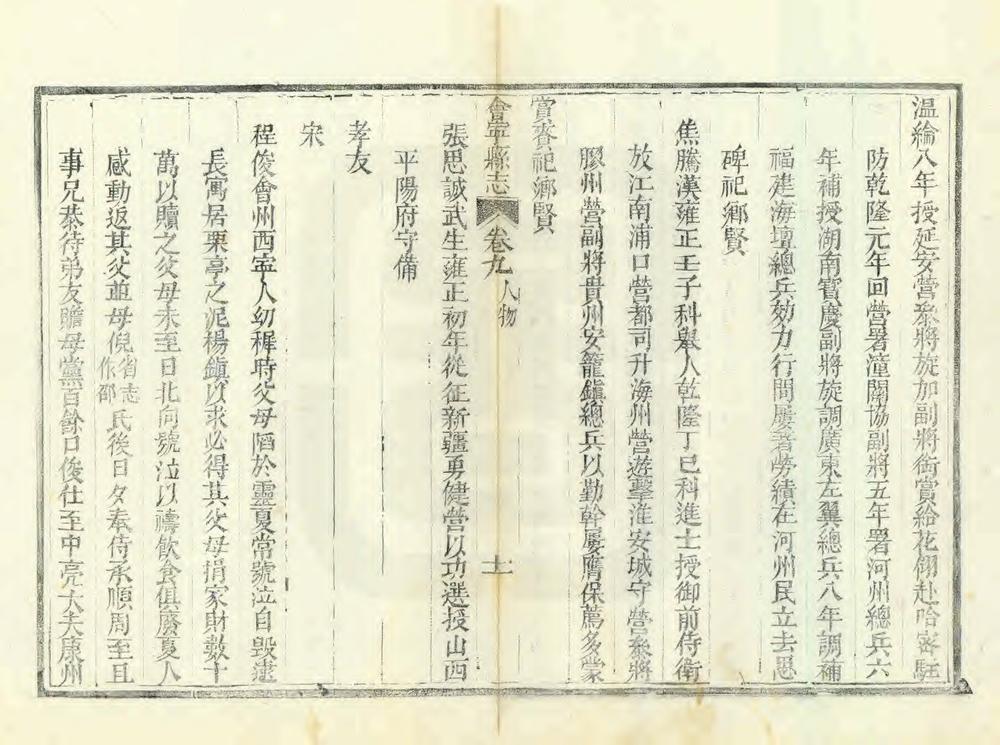 温綸八年授延安營叅將旋加副將銜賞給花翎赴哈密駐
防乾隆元年回營署潼關協副將五年署河州總兵六
年補授湖南寶慶副將旋調廣東左翼總兵八年調補
福建海壇總兵効力行間屢著勞績在河州民立去思
碑祀鄉賢
焦騰漢雍正壬子科舉人乾隆丁巳科進士授御前侍衛
放江南浦口營都司升海州營遊擊淮安城守營叅將
膠州營副將貴州安籠鎮總兵以勤幹屢膺保薦多蒙
賞賚祀鄉賢
會寧縣志 卷九 人物 十一
張思誠武生雍正初年從征新疆勇健營以功選授山西
平陽府守備
孝友
宋
程俊會州西寧人幼穉時父母陷於靈夏常號泣自毀逮
長寓居栗亭之泥楊鎮以求必得其父母捐家財數十
萬以贖之父母未至日北向號泣以禱飲食俱廢夏人
感動返其父並母倪省志作鄒氏後日夕奉侍承順周至且
事兄恭待弟友贍母黨百餘口俊仕至中亮大夫康州